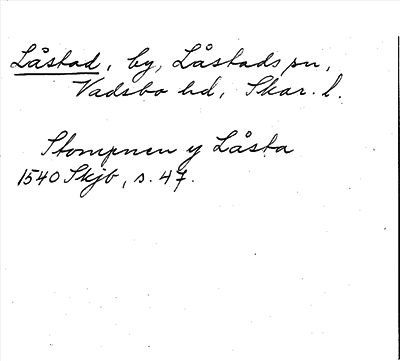 Låstad, by, Låstads sn,
Vadsbo hd, Skar. l.
Stompnen y Låsta
1540 Skjb, s. 47.